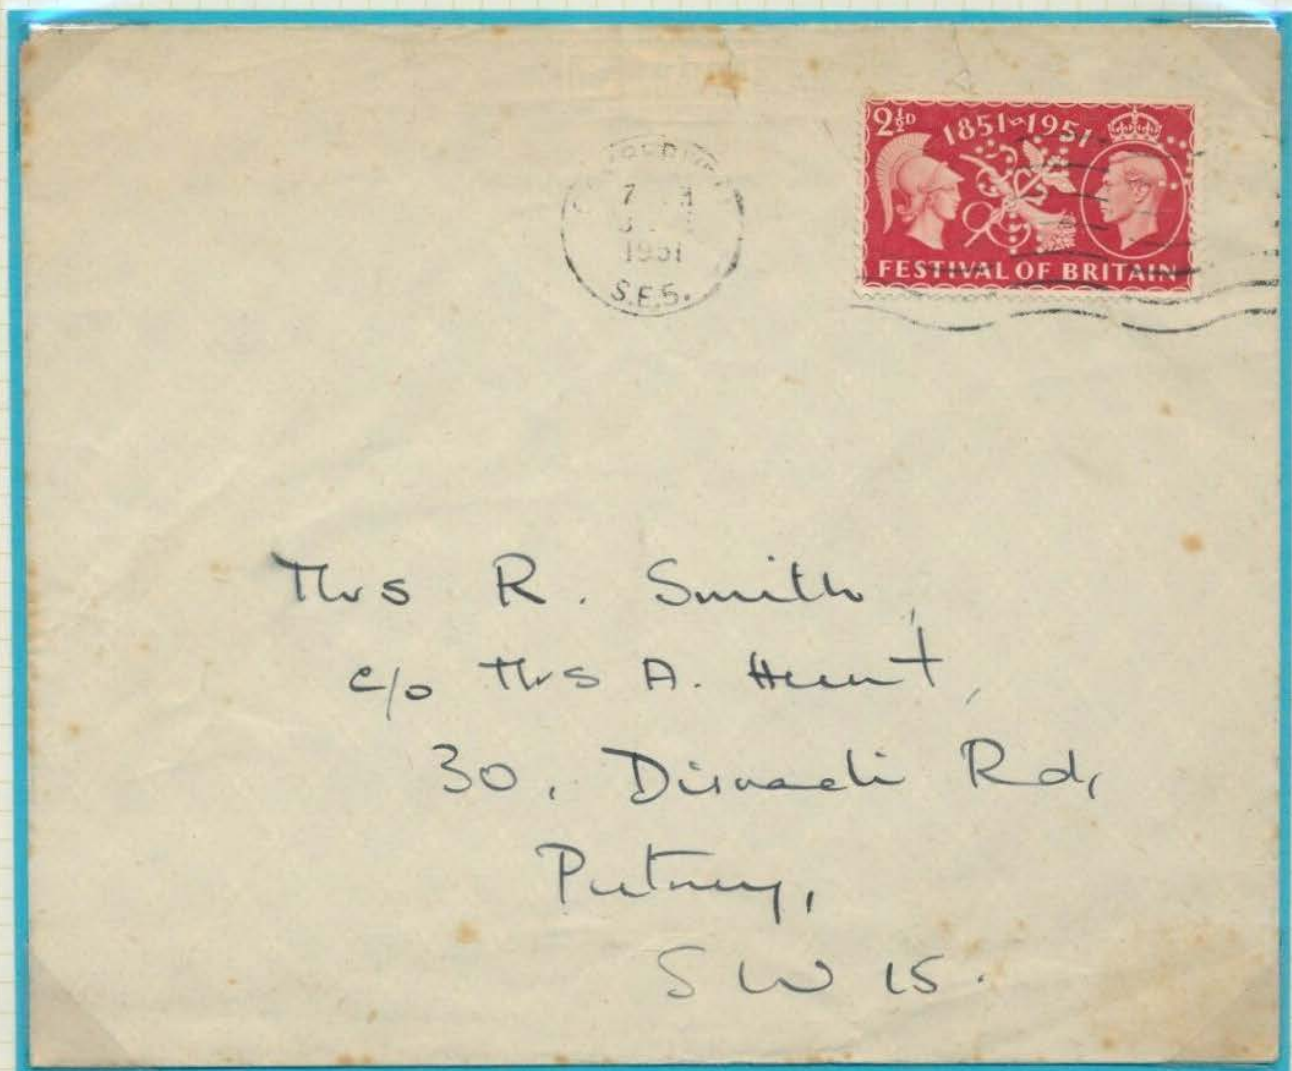 2½D 1851-1951
FESTIVAL OF BRITAIN
1951
S.E.5.
Mrs R. Smith,
c/o Mrs A. Hunt,
30, Disraeli Rd,
Putney,
SW 15.